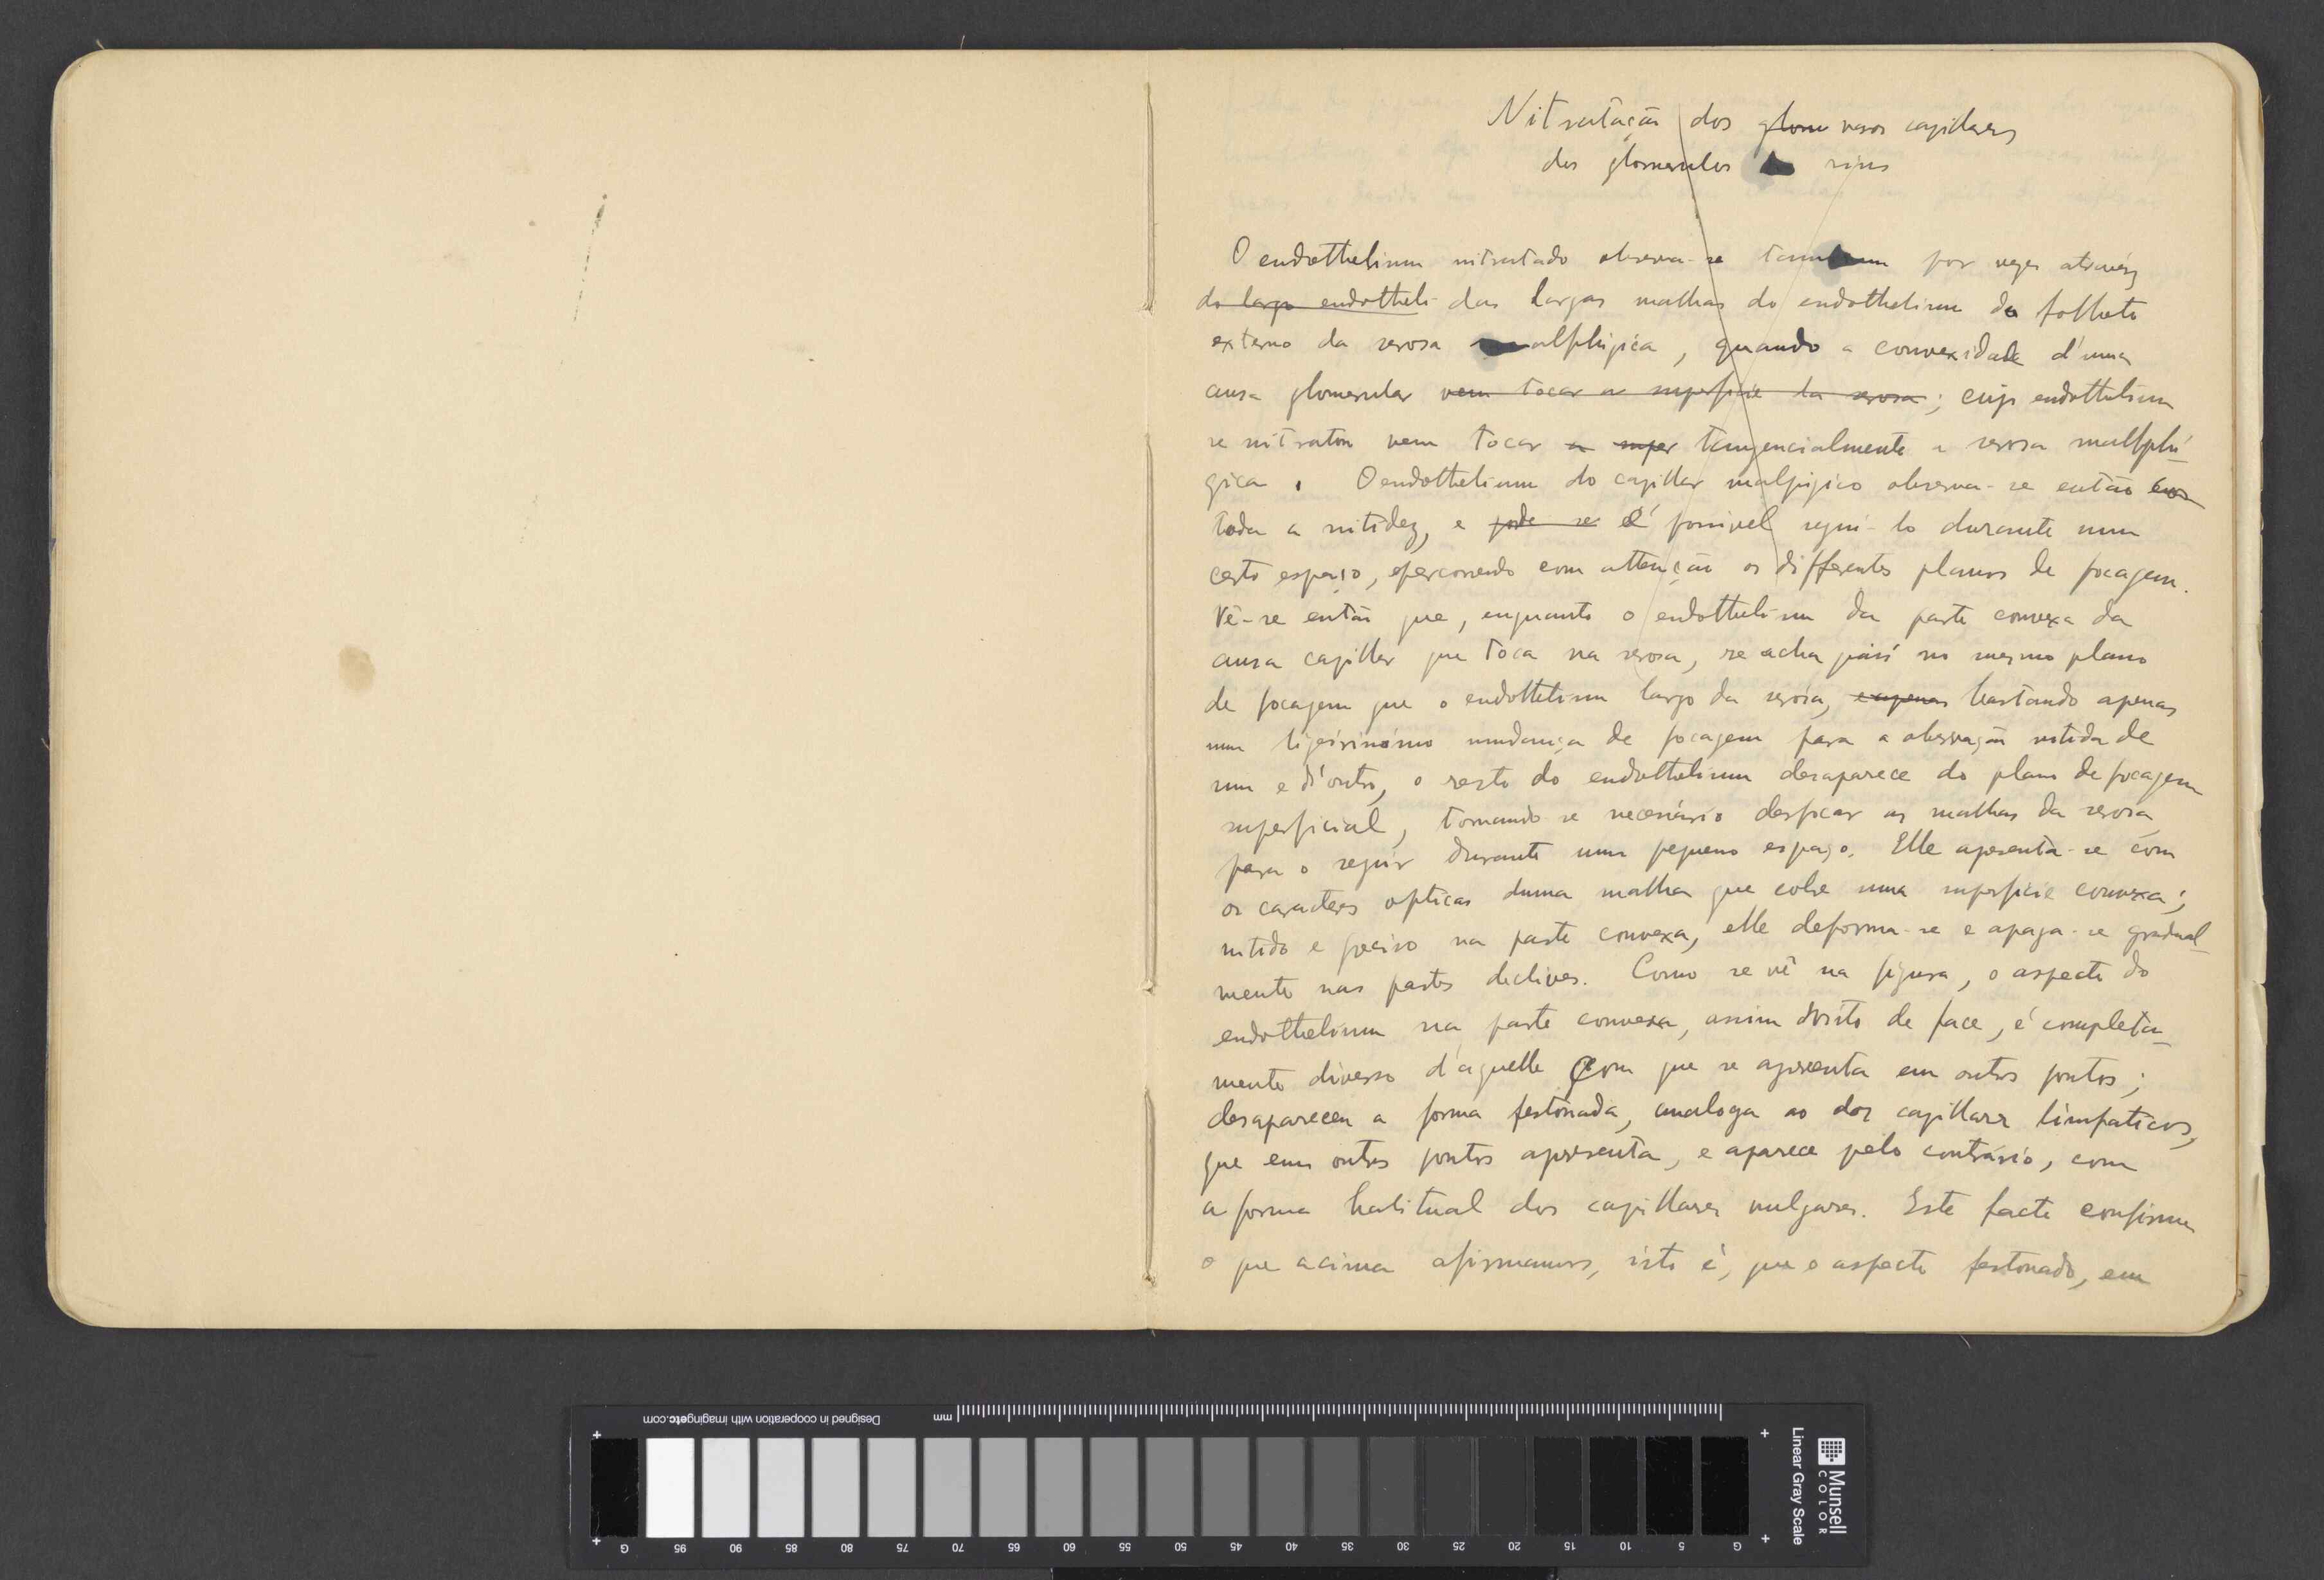 Nitratação dos glom vasos capillares
dos glomerulos rins
O endothelium nitratado observa-se tambem por vezes atravez
do largo endotheli das largas malhas do endothelium do folheto
externo da serosa malphigica, quando a convexidade d'uma
ansa glomerular vem tocar a superficie da serosa; cujo endothelium
se nitratou vem tocar a super tangencialmente a serosa mallphi-
gica. O endothelium do capillar malpigico observa-se então com
toda a nitidez, e pode se é possivel seguí-lo durante um
certo espaço, percorrendo com attenção os differentes planos de focagem.
Vê-se então que, enquanto o endothelium da parte convexa da
ansa capillar que toca na serosa, se acha quasi no mesmo plano
de focagem que o endothelium largo da serosa, e apenas bastando apenas
uma ligeirissima mudança de focagem para a observação nitida de
um e d'outro, o resto do endothelium desaparece do plano de focagem
superficial, tornando-se necessário desfocar as malhas da serosa
para o seguir durante um pequeno espaço. Elle apresenta-se com
os caracteres opticos duma malha que cobre uma superficie convexa;
nitido e preciso na parte convexa, elle deforma-se e apaga-se gradual-
mente nas partes declives. Como se vê na figura, o aspecto do
endothelium na parte convexa, assim visto de face, é completa-
mente diverso d'aquelle com que se apresenta em outros pontos;
desapareceu a forma festonada, analoga ao dos capillares linfaticos,
que em outros pontos apresenta, e aparece pelo contrário, com
a forma habitual dos capillares vulgares. Este facto confirma
o que acima afirmamos, isto é, que o aspecto festonado, em
Designed in cooperation with imagingetc.com
mm
Munsell
COLOR
Linear Gray Scale
G 95 90 85 80 75 70 65 60 55 50 45 40 35 30 25 20 15 10 5 G